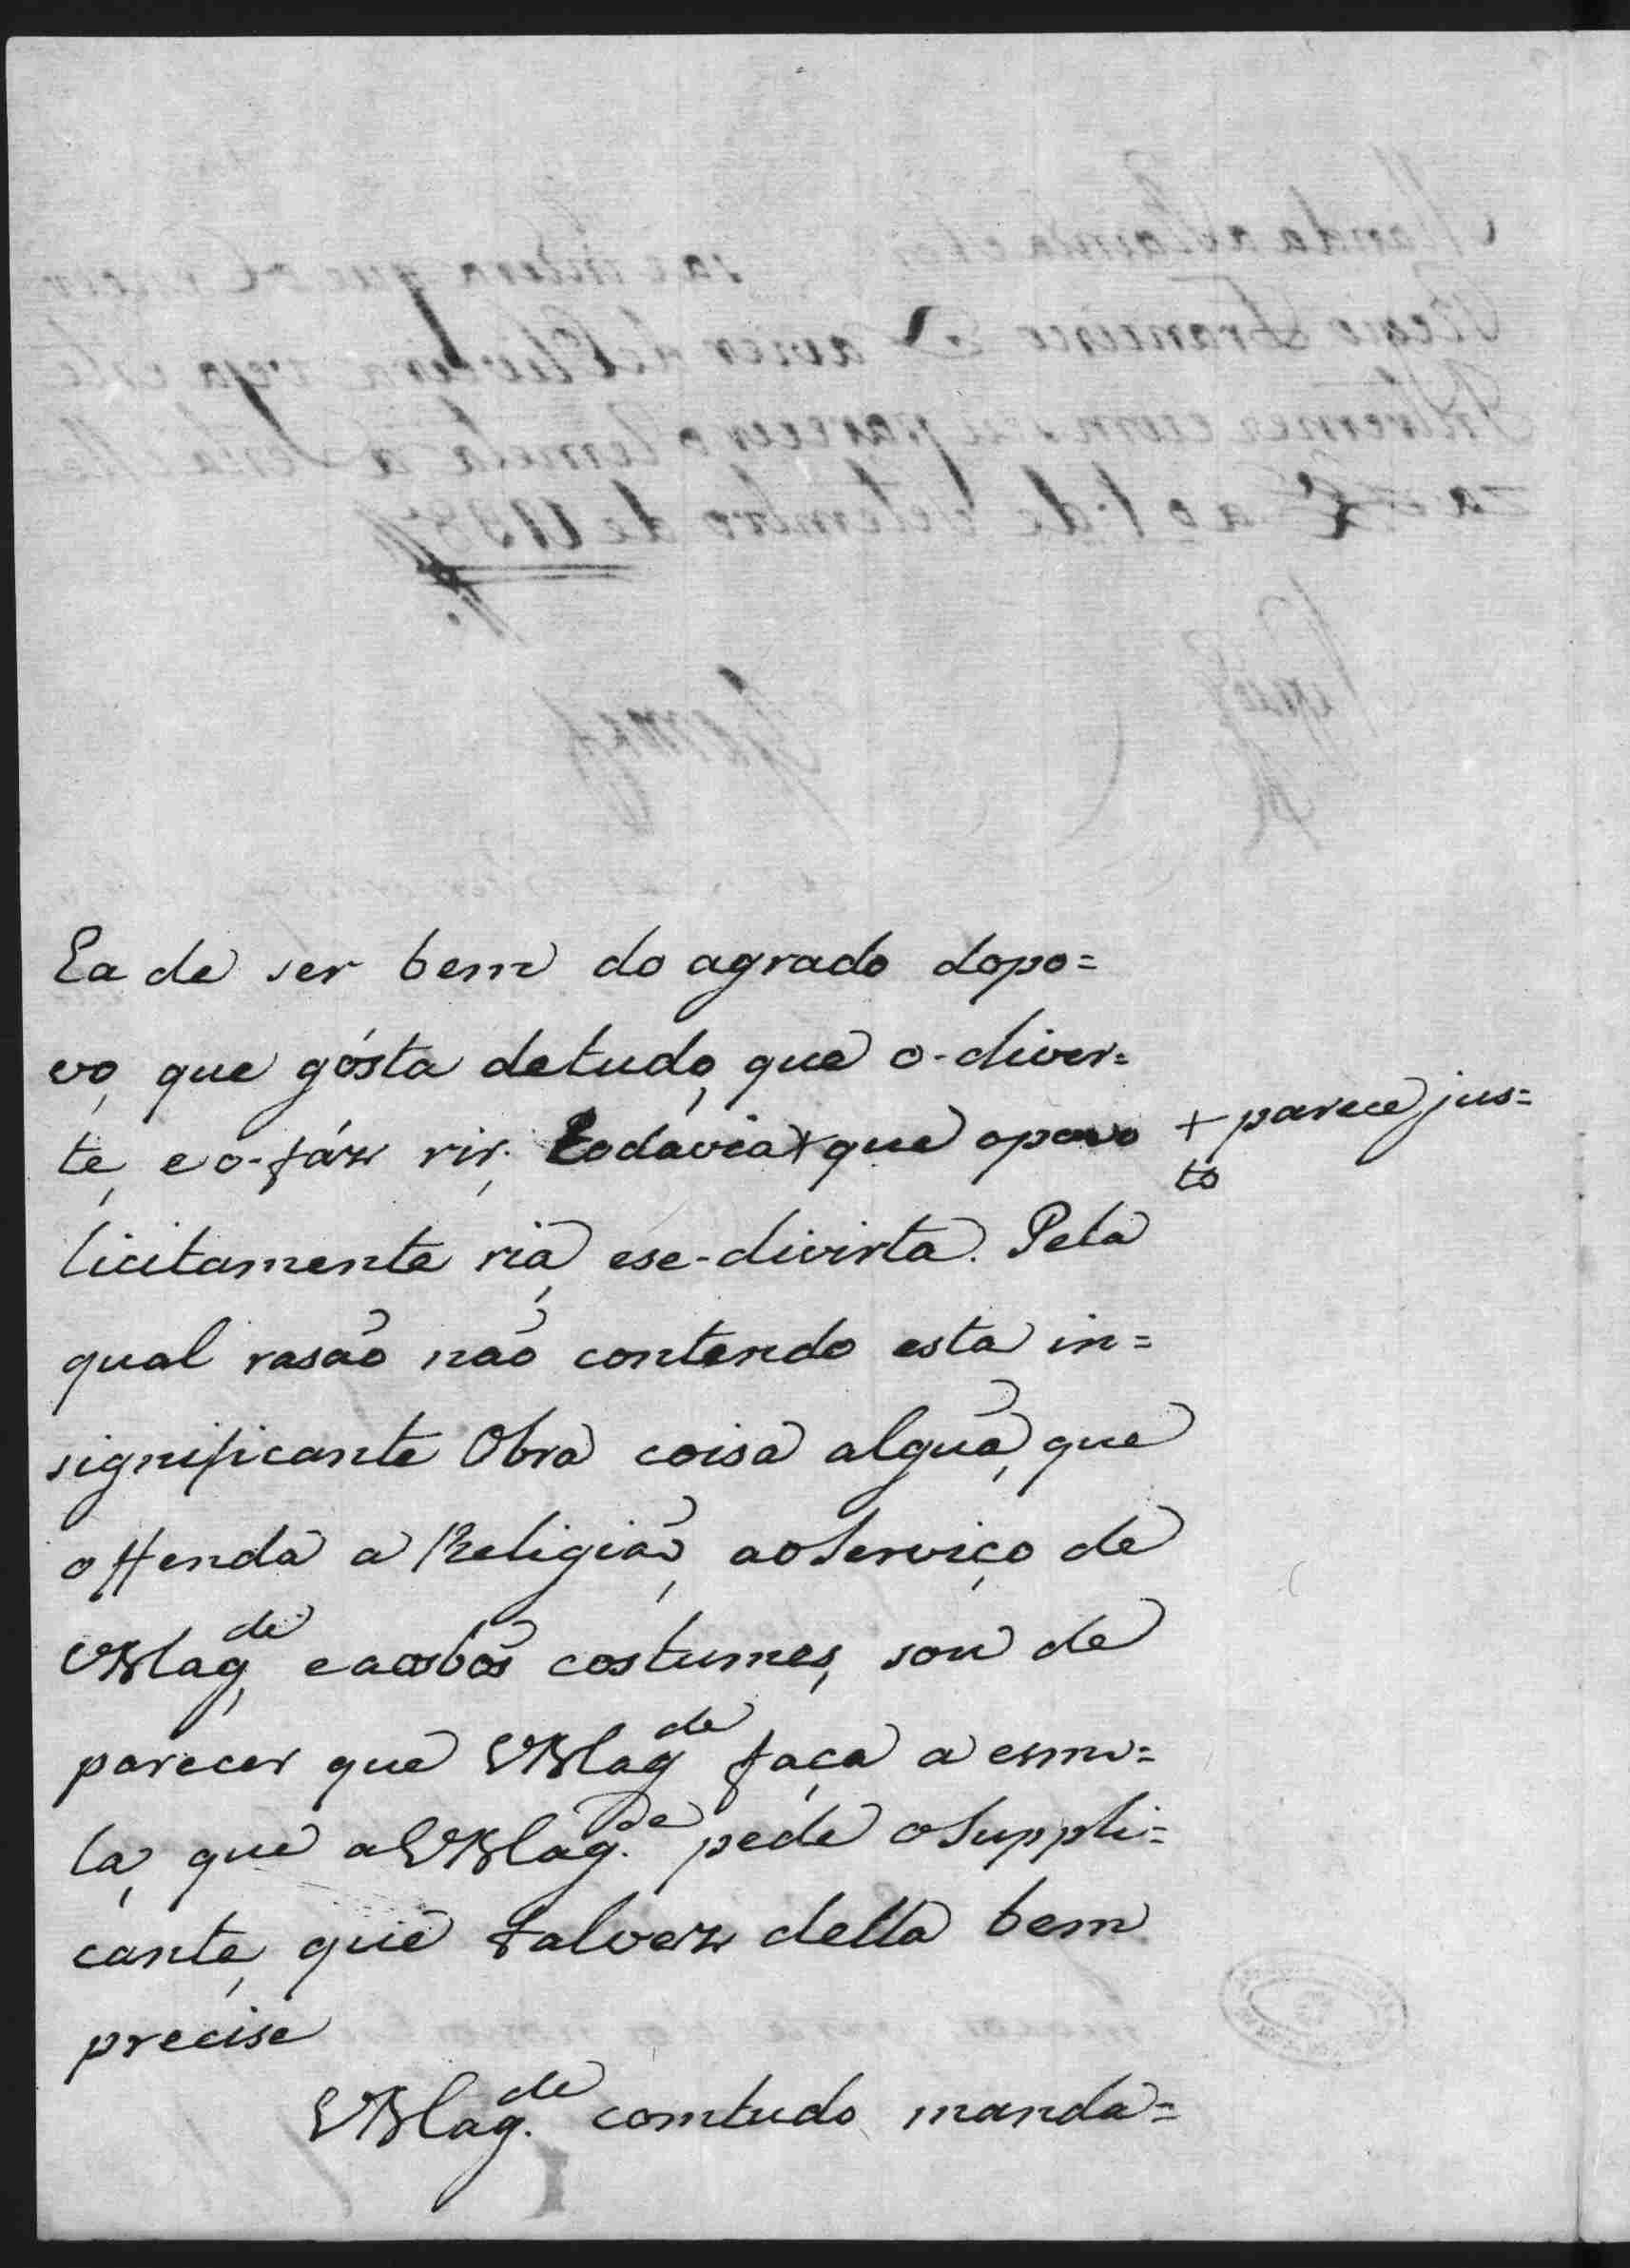 Ea de ser bem do agrado dopo=
vo, que gósta detudo, que o-diver=
te, e o-fáz rir. Todavia + que opovo
+ parece jus=
to
licitamente ria, ese-divirta. Pela
qual rasão não contendo esta in=
significante Obra coisa algũa, que
offenda a Religião, aoServiço de
VMag.de, eaosbõs costumes, sou de
parecer que VMag.de faça a esmo=
la, que aVMag.de pede oSuppli=
cante, que talvez della bem
precise
VMag.de comtudo manda=